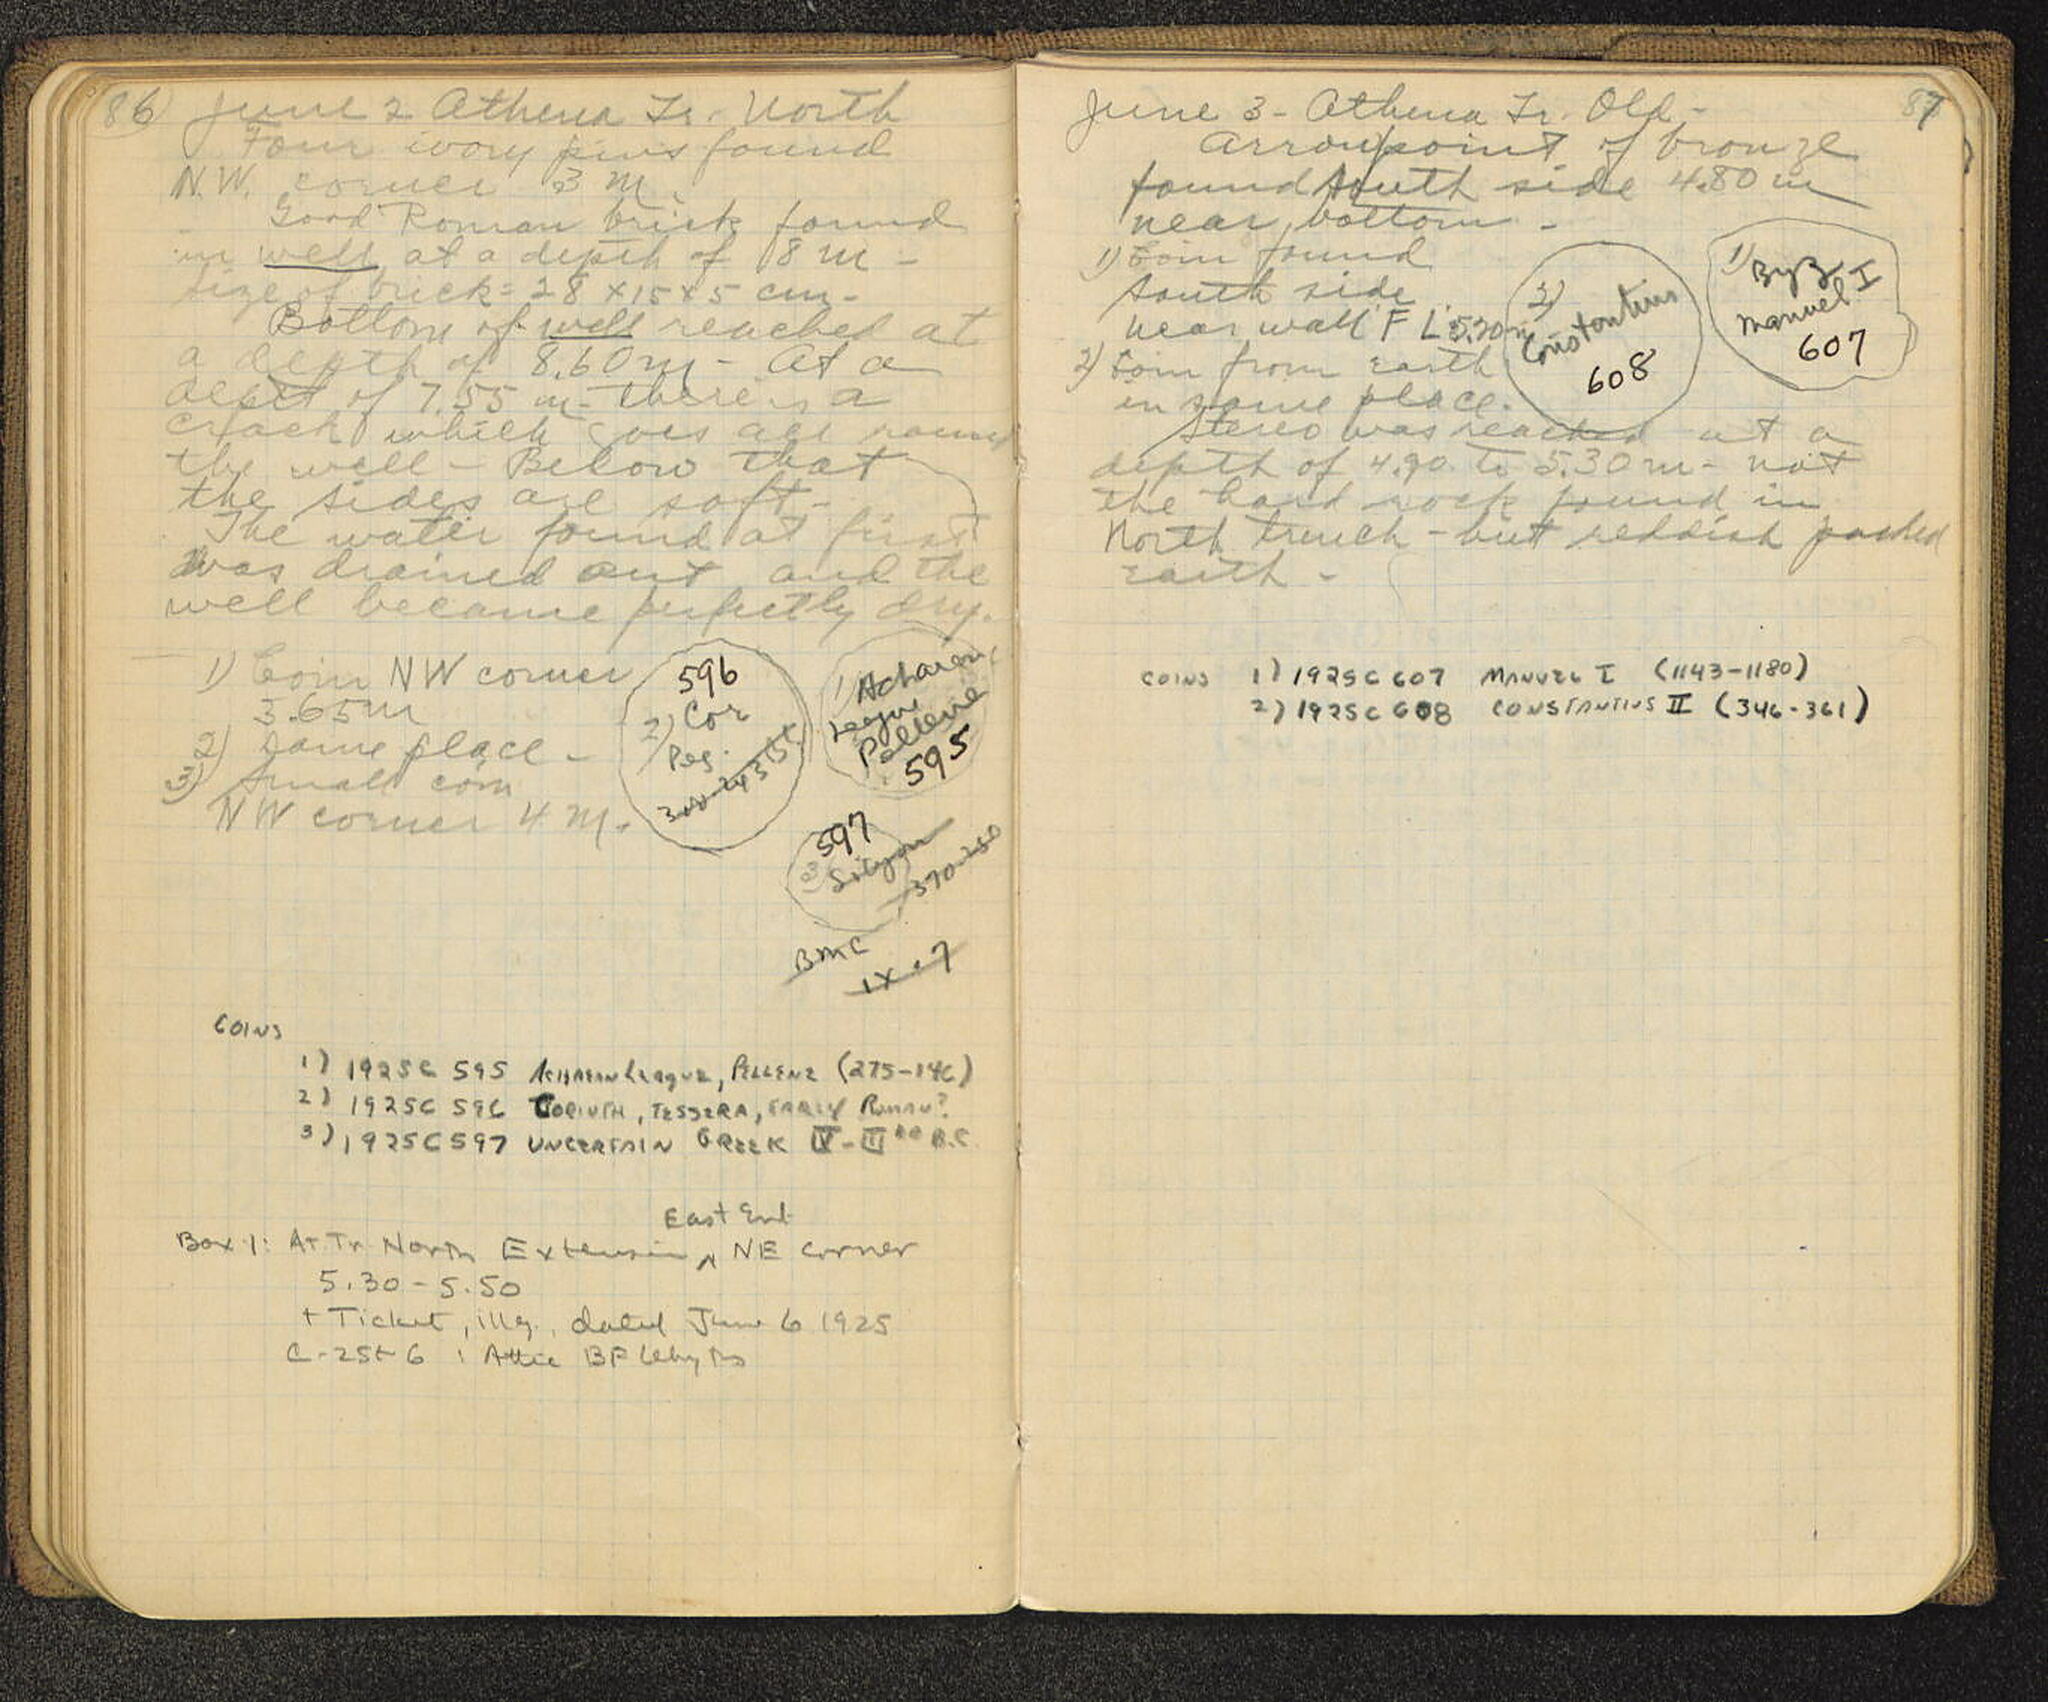 86 June 2 Athena Tr. North
Four ivory pins found
N.W. corner 3 m.
Good Roman brick found
in well at a depth of 8 m -
size of brick = 28 x 15 x 5 cm -
Bottom of well reached at
a depth of 8.60 m - At a
depth of 7.55 m - there is a
crack which goes all round
the well - Below that
the sides are soft -
The water found at first
was drained out and the
well became perfectly dry.
1) Coin NW corner
3.65 m
2) Same place -
3) Small coin
NW corner 4 M.
596
2) Cor
Peg.
1) Achaean
League
Pellene
595
597
3) Sikyon
370-250
BMC
IX . 7
COINS
1) 1925 C 595 ACHAEAN LEAGUE, PELLENE (275-146)
2) 1925 C 596 CORINTH, TESSERA, EARLY ROMAN?
3) 1925 C 597 UNCERTAIN GREEK IV - III B.C.
East End
Box 1: At Tr North Extension ^ NE corner
5.30 - 5.50
+ Ticket, illg., dated June 6 1925
C-25-6 : Attic BF
87
June 3 - Athena Tr. Old -
Arrowpoint of bronze
found South side 4.80 m
near bottom -
1) Coin found
South side
near wall F L 5.20 m
2) Coin from earth
in same place.
Stereo was reached at a
depth of 4.90 to 5.30 m - not
the hard rock found in
North trench - but reddish packed
earth -
2)
Constantius
608
1) Byz
Manuel I
607
COINS 1) 1925 C 607 MANUEL I (1143-1180)
2) 1925 C 608 CONSTANTIUS II (346-361)